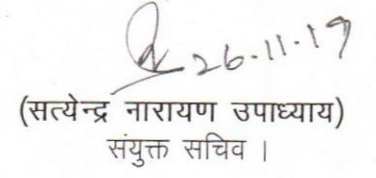 26.11.19
(सत्येन्द्र नारायण उपाध्याय)
संयुक्त सचिव ।